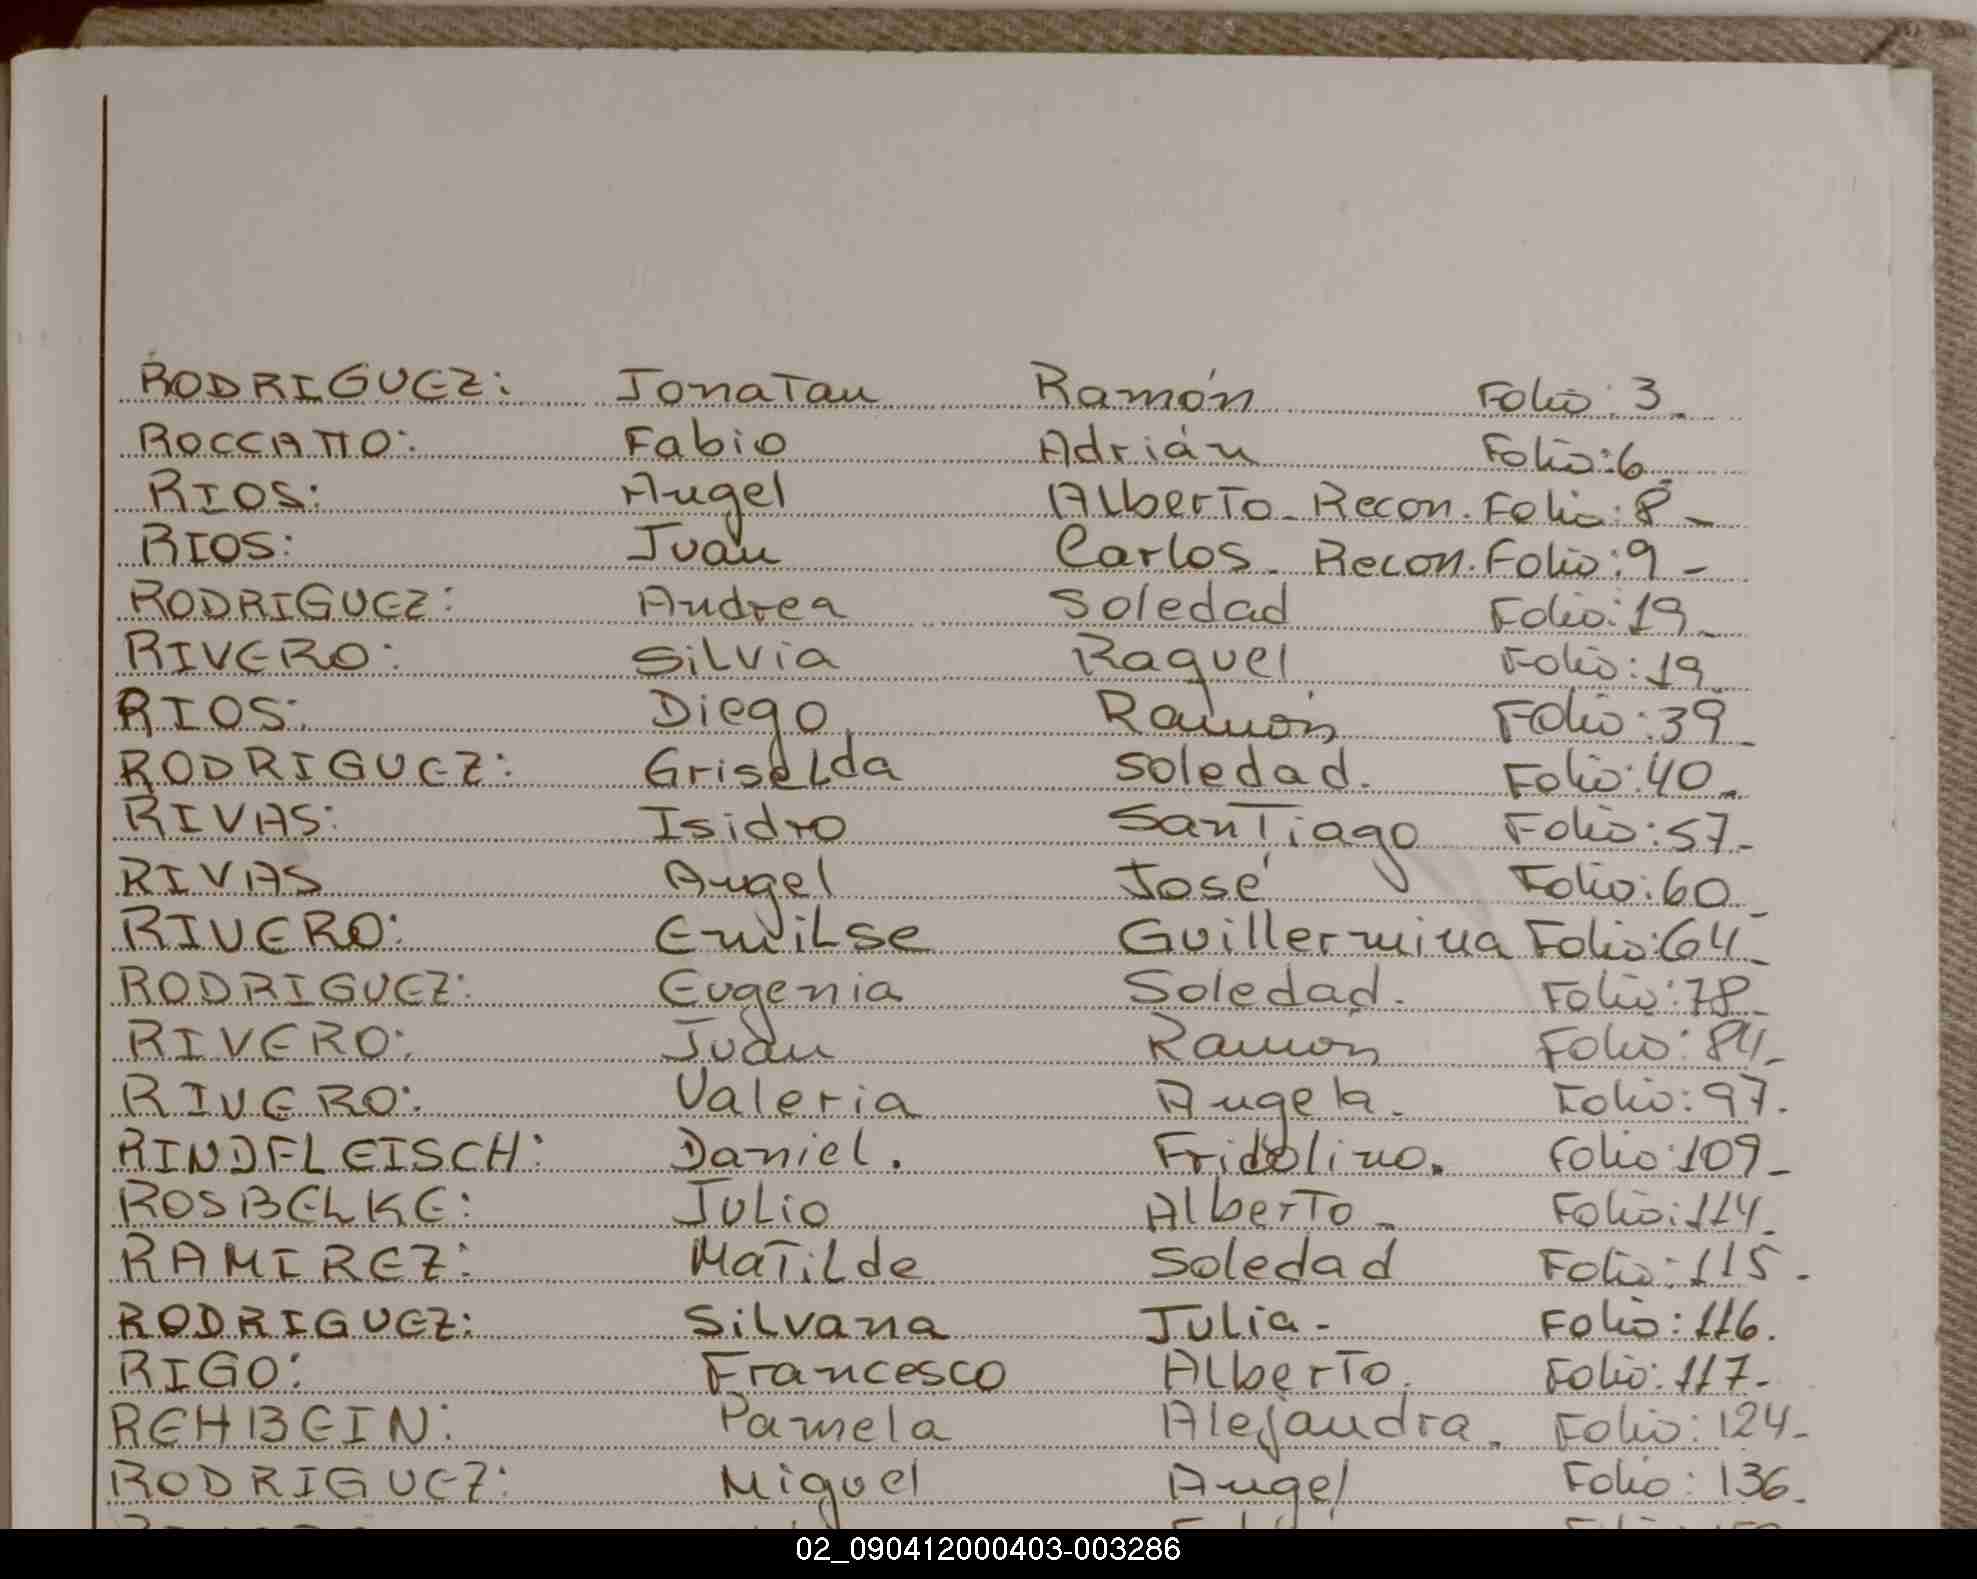 RODRIGUEZ: Jonatan Ramón Folio: 3.
ROCCATTO: Fabio Adrián Folio: 6.
RIOS: Angel Alberto. Recon. Folio: 8 -
RIOS: Juan Carlos. Recon. Folio: 9 -
RODRIGUEZ: Andrea Soledad Folio: 19.
RIVERO: Silvia Raquel Folio: 19.
RIOS: Diego Ramón Folio: 39.
RODRIGUEZ: Griselda Soledad. Folio: 40.
RIVAS: Isidro Santiago Folio: 57-
RIVAS Angel José Folio: 60-
RIVERO: Emilse Guillermina Folio: 64-
RODRIGUEZ: Eugenia Soledad. Folio: 78-
RIVERO: Juan Ramón Folio: 84-
RIVERO: Valeria Angela. Folio: 97.
RINDFLEISCH: Daniel. Fridolino. Folio: 109-
ROSBELKE: Julio Alberto. Folio: 114.
RAMIREZ: Matilde Soledad Folio: 115.
RODRIGUEZ: Silvana Julia- Folio: 116.
RIGO: Francesco Alberto. Folio: 117-
REHBEIN: Pamela Alejandra. Folio: 124-
RODRIGUEZ: Miguel Angel Folio: 136.
02_090412000403-003286